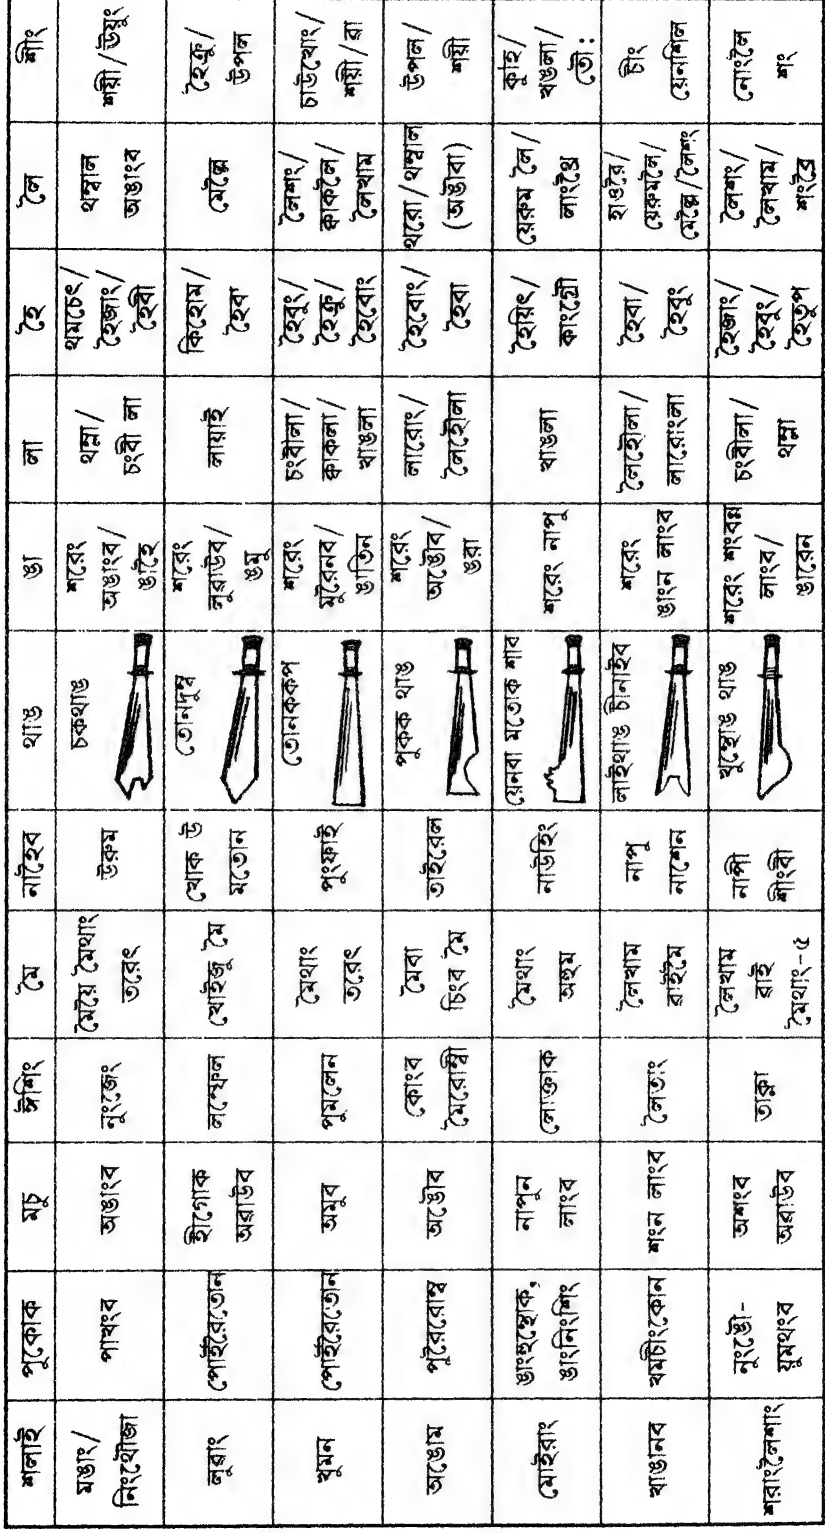 শলাই	পুকোক	মচু	ঈশিং	মৈ	নাহৈব	থাঙ	ঙা	লা	হৈ	লৈ	শীং
মঙাং/
নিংথৌজা
পাখংব
অঙাংব
নুংজেং
মৈয়ৈ মৈথাং
তরেৎ
উরুম
চকথাঙ
শরেং
অঙাংব/
ঙাহৈ
থম্না/
চংবী লা
থমচেৎ/
হৈজাং/
হৈবী
থম্বাল
অঙাংব
শয়ী/উয়ুং
লুৱাং
পোইরৈতোন
হীগোক
অৱাউব
লম্ফেল
খোইজু মৈ
খোক উ
মতোন
তোনদুম্ব
শরেং
লুৱাউব/
ঙমু
লায়াই
কিহোম/
হৈবা
মেল্লৈ
হৈক্রু/
উপল
খুমন
পোইরৈতোন
অমুব
পুমলেন
মৈথাং
তরেৎ
পুংফাই
তোনককপ
শরেং
মুরৈনব/
ঙাতিন
চংবীলা/
ক্বাকলা/
খাঙলা
হৈবুং/
হৈক্রু/
হৈবোং
লৈশং/
ক্বাকলৈ/
লৈখাম
চাউখোং/
শয়ী/ৱা
অঙোম
পুরৈরোম্ব
অঙৌব
কোংব
মৈরোম্বী
মৈবা
চিংব মৈ
তাইরেল
পুকক থাঙ
শরেং
অঙৌব/
ঙরা
লারোং/
লৈহৌলা
হৈবোং/
হৈবা
থরো/থম্বাল
(অঙৌবা)
উপল/
শয়ী
মোইরাং
ঙাংহুম্থোক,
ঙাংনিংশিং
নাপুন
লাংব
লোক্তাক
মৈথাং
অহুম
নাউহিং
য়েনবা মতোক শাব
শরেং নাপু
খাঙলা
হৈয়িৎ/
কাংগ্রৌ
য়েরুম লৈ/
লাংথ্রৈ
কুহি/
খঙলা/
তৌ:
খাঙানব
খমচীংকোন
শংন লাংব
লৈতাং
লৈখাম
ৱাইমৈ
নাপু
নাশেন
লাইথাঙ চীনাইব
শরেং
ঙাংন লাংব
লৈহৌলা/
লারোংলা
হৈবা/
হৈবুং
হাওরৈ/
য়েরুমলৈ/
মেল্লৈ/লৈশং
চীং
য়েনশিল
শরাংলৈশাং
নুংঙৌ-
য়ুমথংব
অশংব
অৱাউব
তান্না
লৈখাম
ৱাই
মৈথাং-৫
নাপী
শীংবী
খুম্থোঙ থাঙ
শরেং শংবন্ন
লাংব/
ঙারেন
চংবীলা/
থম্না
হৈজাং/
হৈবুং/
হৈতুপ
লৈশং/
লৈখাম/
শংব্রৈ
নোংলৈ
শং